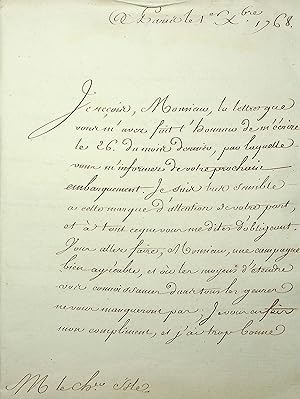 A Paris le 1er Xbre 1768.
Je reçois, Monsieur, la lettre que
vous m'avez fait l'honneur de m'écrire
le 26. du mois dernier, par laquelle
vous m'informez de votre prochain
embarquement. Je suis très sensible
a cette marque d'attention de votre part,
et à tout ce que vous me dites d'obligeant.
Vous allez faire, Monsieur, une campagne
bien agréable, et où les moyens d'étendre
vos connoissances dans tous les genres
ne vous manqueront pas. Je vous en fais
mon compliment, et j'ai trop bonne
M. le cher